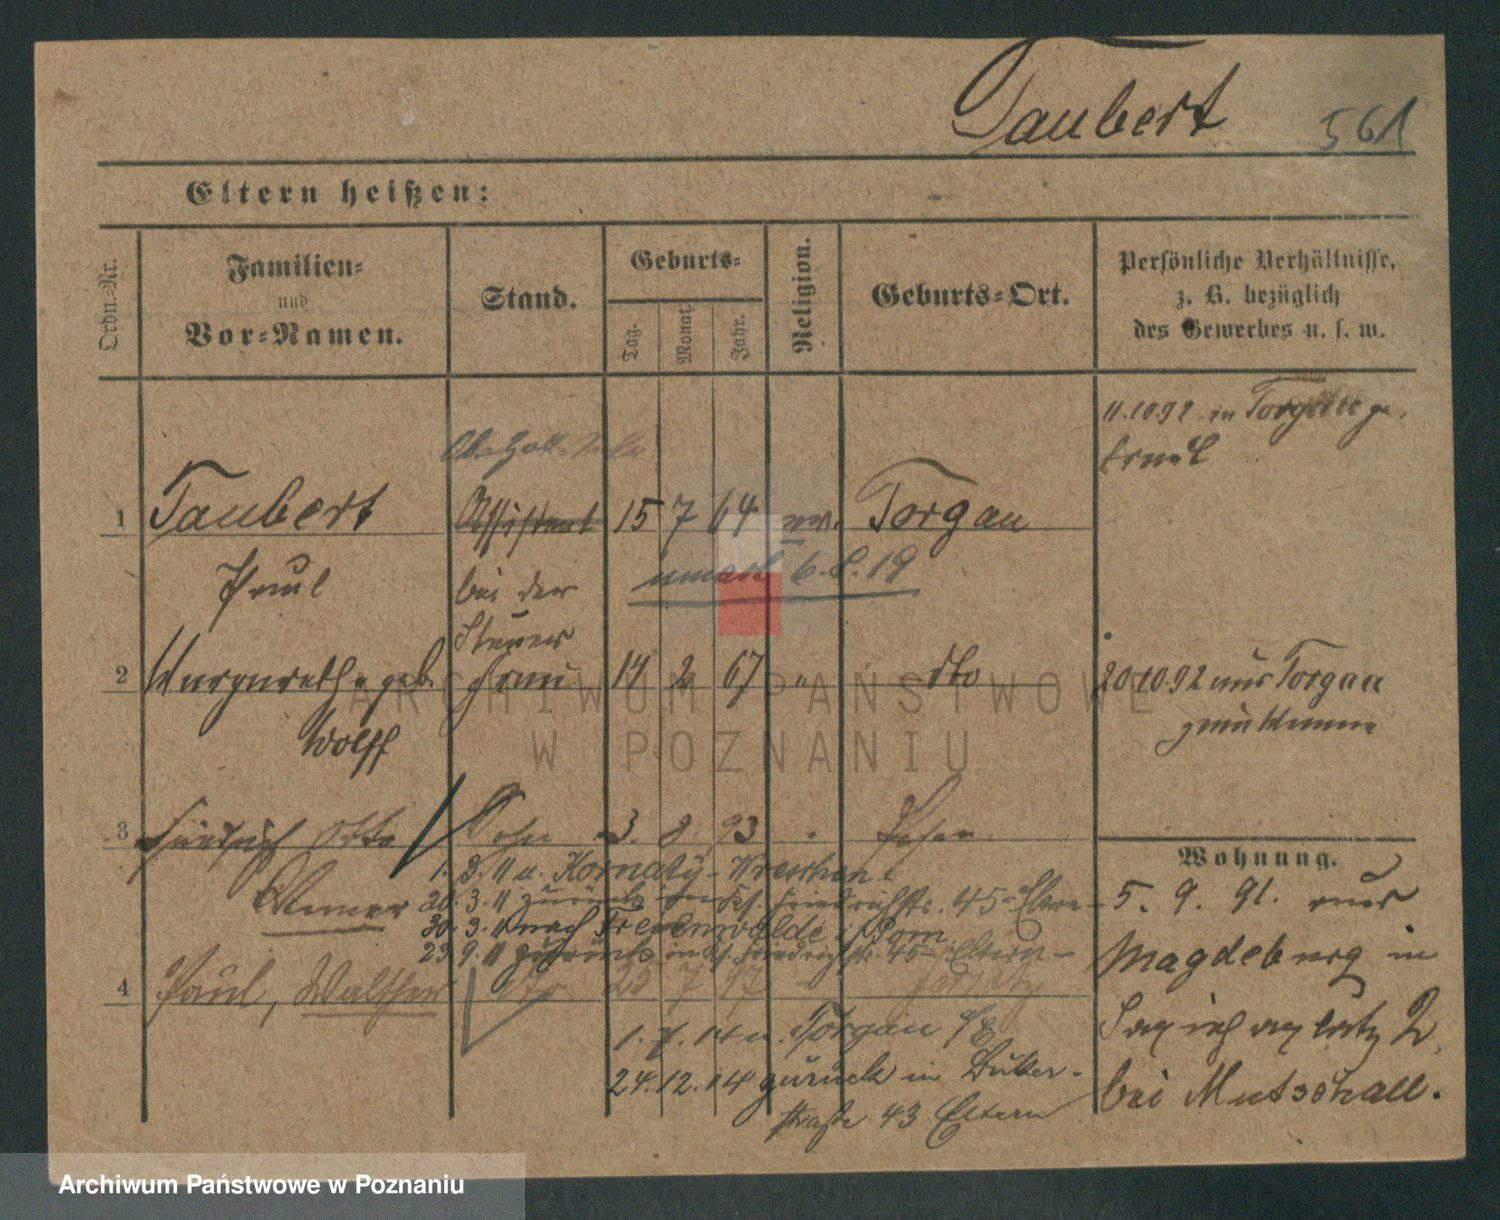 Taubert 561
Eltern heißen:
Ordn.-Nr.
Familien-
und
Vor-Namen.
Stand.
Geburts-
Tag.
Monat.
Jahr.
Religion.
Geburts-Ort.
Persönliche Verhältnisse,
z. B. bezüglich
des Gewerbes u. s. w.
11.10.92 in Torgau ge-
traut
1 Taubert Assistent 15 7 64 ev. Torgau
Paul bei der 6.8.19
Steuer
2 Margarethe geb. Frau 14 2 67 " dto 20.10.92 aus Torgau
Wolff
3 Friedrich Otto Sohn 3. 8. 93 " Posen
Wohnung.
1. 3. 11 u. Wreschen
Werner 20. 3. 11 zurück Friedrichstr. 45 Eltern 5. 9. 91. aus
30. 3. 11 nach Freienwalde i. Pom.
23. 9. 11 zurück in Friedrichstr. 45 Eltern Magdeburg in
4 Paul, Walther dto 25 7 97 Jersitz
1. 7. 14 u. Torgau a/E Sapiehaplatz 2
24. 12. 14 zurück in Buker-
straße 43 Eltern bei Mutschall.
ARCHIWUM PAŃSTWOWE
W POZNANIU
Archiwum Państwowe w Poznaniu